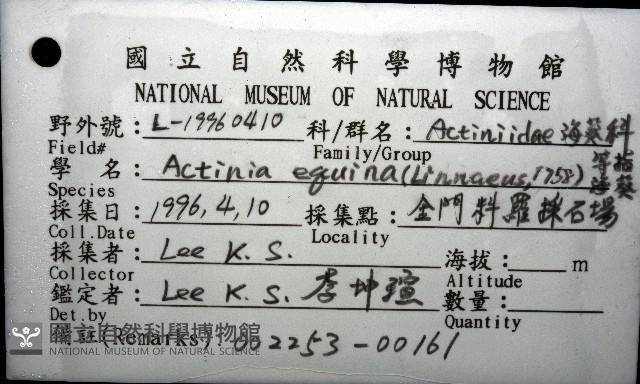 國立自然科學博物館
NATIONAL MUSEUM OF NATURAL SCIENCE
野外號：L-19960410 科/群名：Actiniidae 海葵科
Field# Family/Group
學 名：Actinia equina (Linnaeus, 1758) 等指海葵
Species
採集日：1996,4,10 採集點：金門料羅採石場
Coll.Date Locality
採集者：Lee K. S. 海拔： m
Collector Altitude
鑑定者：Lee K. S. 李坤瑄 數量：
Det.by Quantity
(Remarks) 002253-00161
國立自然科學博物館
NATIONAL MUSEUM OF NATURAL SCIENCE